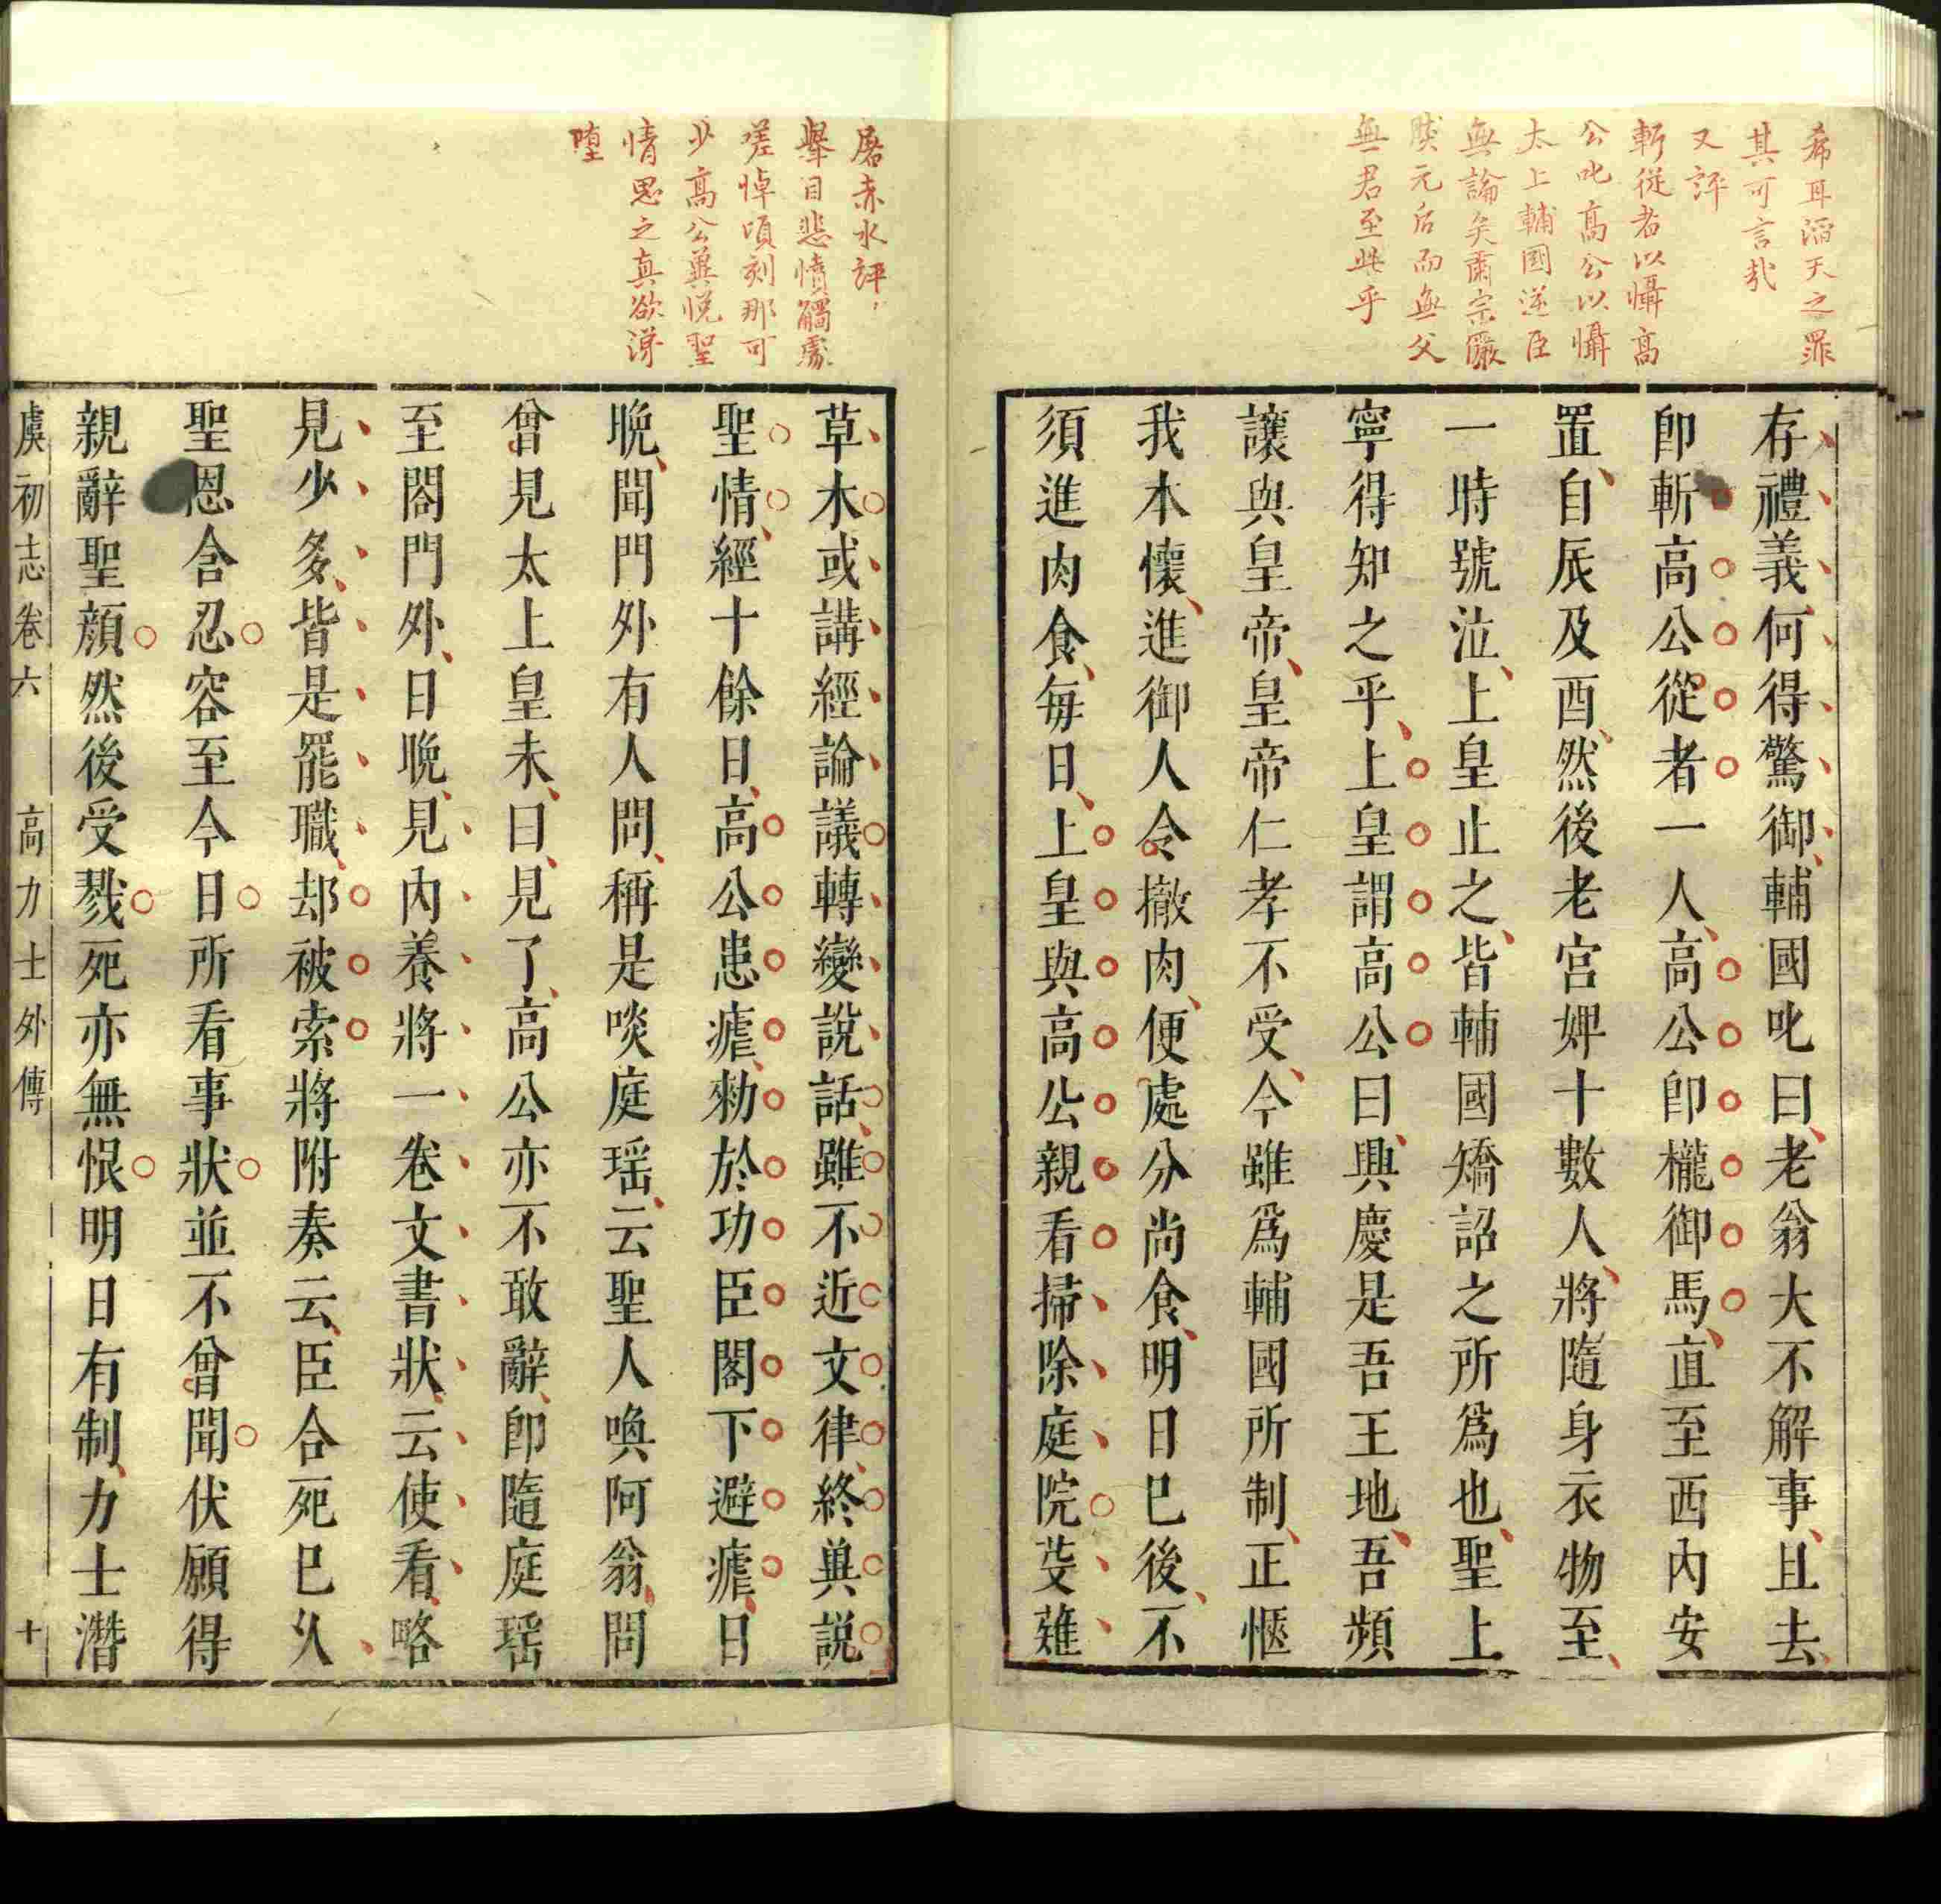 希耳滔天之罪
其可言哉
又評
斬從者以懾高
公叱高公以懾
太上輔國逆臣
無論矣肅宗嚴
元后而無父
無君至此乎
存禮義何得驚御輔國叱曰老翁大不解事且去
卽斬高公從者一人高公卽櫳御馬直至西內安
置自辰及酉然後老宮婢十數人將隨身衣物至
一時號泣上皇止之皆輔國矯詔之所爲也聖上
寧得知之乎上皇謂高公曰興慶是吾王地吾頻
讓與皇帝皇帝仁孝不受今雖爲輔國所制正愜
我本懷進御人令撤肉便處分尚食明日已後不
須進肉食每日上皇與高公親看掃除庭院芟薙
屠赤水評
舉目悲憤觸處
嗟悼頃刻那可
少高公巽悅聖
情思之真欲涕
墮
草木或講經論議轉變說話雖不近文律終巽説
聖情經十餘日高公患瘧勑於功臣閣下避瘧日
晚聞門外有人問稱是啖庭瑶云聖人喚阿翁問
曾見太上皇未曰見了高公亦不敢辭卽隨庭瑶
至閤門外日晚見內養將一卷文書狀云使看略
見少多皆是罷職却被索將附奏云臣合死已久
聖恩含忍容至今日所看事狀並不曾聞伏願得
親辭聖顏然後受戮死亦無恨明日有制力士潛
虞初志卷六　高力士外傳　十